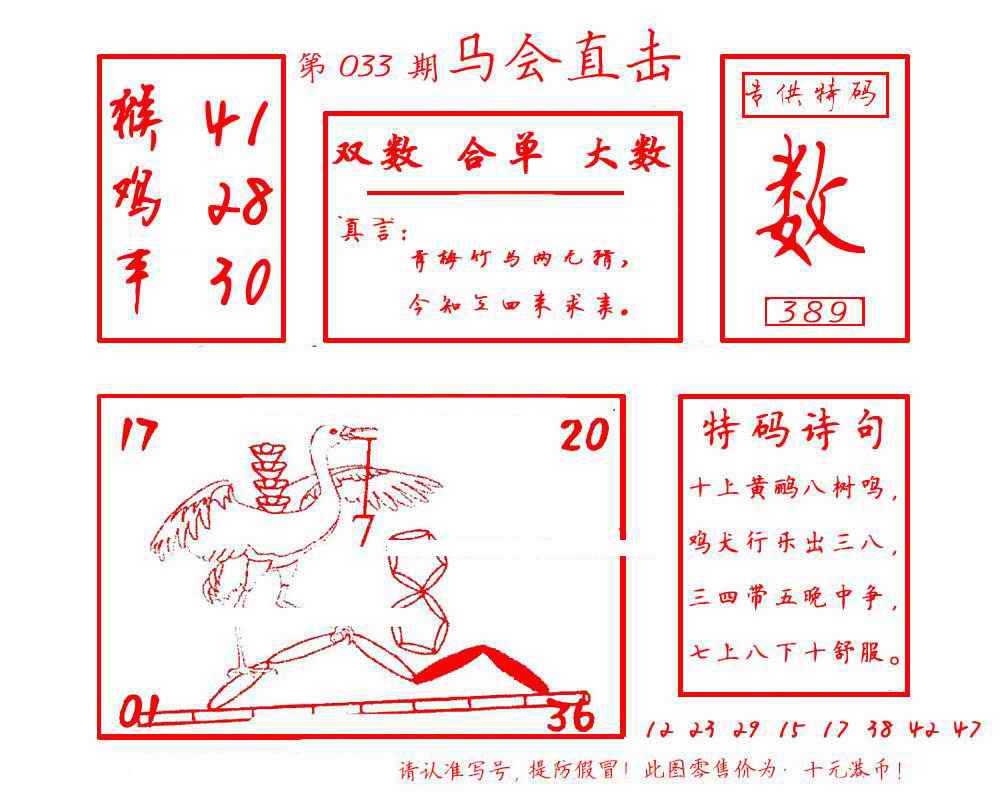 第 033 期 马会直击
猴 41
鸡 28
羊 30
双数 合单 大数
真言:
青梅竹马两无猜,
今知三四来求亲。
专供特码
数
389
17
20
7
01
36
特码诗句
十上黄鹂八树鸣,
鸡犬行乐出三八,
三四带五晚中争,
七上八下十舒服。
12 23 29 15 17 38 42 47
请认准写号, 提防假冒! 此图零售价为· 十元港币!